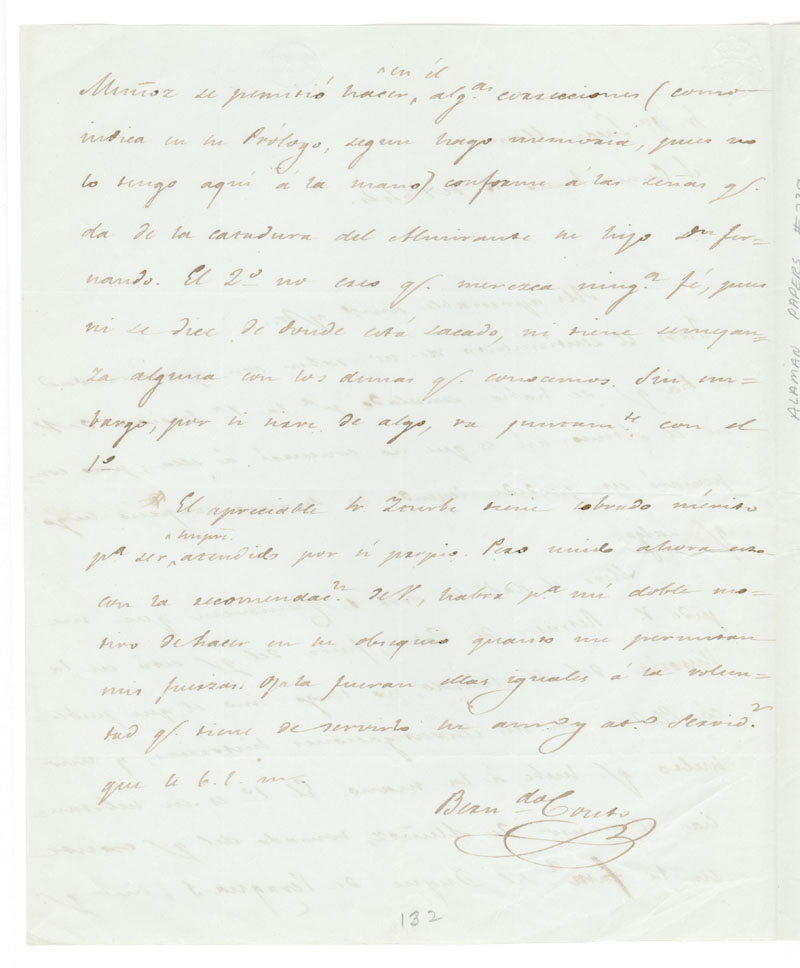 ^ en él
Muñoz se permitió hacer ^ alg.as correcciones (como
indica en su Prólogo, segun hago memoria, pues no
lo tengo aquí á la mano) conforme á las señas q.
da de la catadura del Almirante su hijo Dn Fer-
nando. El 2º no creo q. merezca ning.a fé, pues
ni se dice de donde está sacado, ni tiene semejan-
za alguna con los demas q. conocemos. Sin em-
bargo, por si sirve de algo, va juntam.te con el
1º
El apreciable Sr. tiene sobrado mérito
^ siempre.
pa ser ^ atendido por si propio. Pero unido ahora eso
con la recomendac.n de V., habrá pa mí doble mo-
tivo de hacer en su obsequio quanto me permitan
mis fuerzas: Ojala fueran ellas iguales á la volun-
tad q. tiene de servirlo su am.o y at.o Servid.r
que le b. l. m.
Bern.do Couto
132
ALAMAN PAPERS #